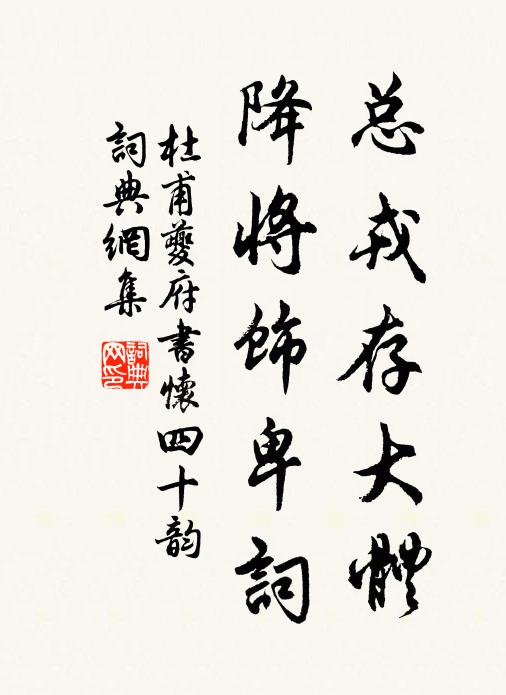 总戎存大體
降將飾卑詞
杜甫夔府書懷四十韵
詞典網集
詞典網印